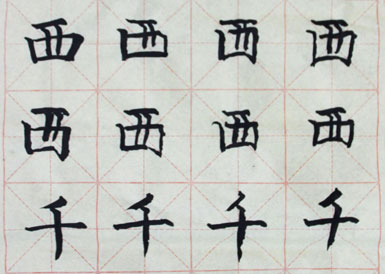 西西西西
西西西西
千千千千